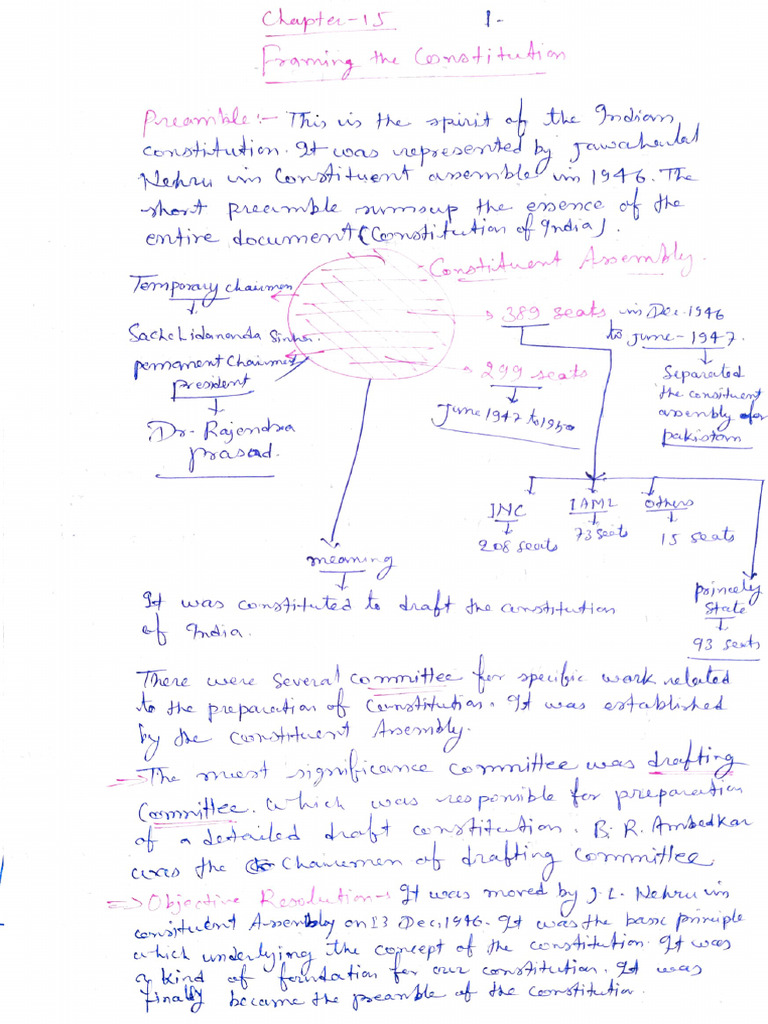 Chapter-15
1-
Framing the Constitution
Preamble:- This is the spirit of the Indian
constitution. It was represented by Jawaharlal
Nehru in Constituent assemble in 1946. The
short preamble sumsup the essence of the
entire document (Constitution of India).
Constituent Assembly.
Temporary Chairman
Sachchidananda Sinha.
permanent Chairman
president
Dr. Rajendra
prasad.
389 seats in Dec.1946
to june-1947.
Separated
the constituent
assembly for
pakistan
299 seats
June 1947 to 1950
INC
208 seats
IAML
73 seats
others
15 seats
princely
state
93 seats
meaning
It was constituted to draft the constitution
of India.
There were several committee for specific work related
to the preparation of Constitution. It was established
by the constituent Assembly.
The most significance committee was drafting
Committee. which was responsible for preparation
of a detailed draft constitution. B. R. Ambedkar
was the Chairmen of drafting committee
=> Objective Resolution- It was moved by J. L. Nehru in
constituent Assembly on 13 Dec,1946. It was the basic principle
which underlying the concept of the constitution. It was
a kind of foundation for our constitution. It was
finally became the preamble of the constitution.